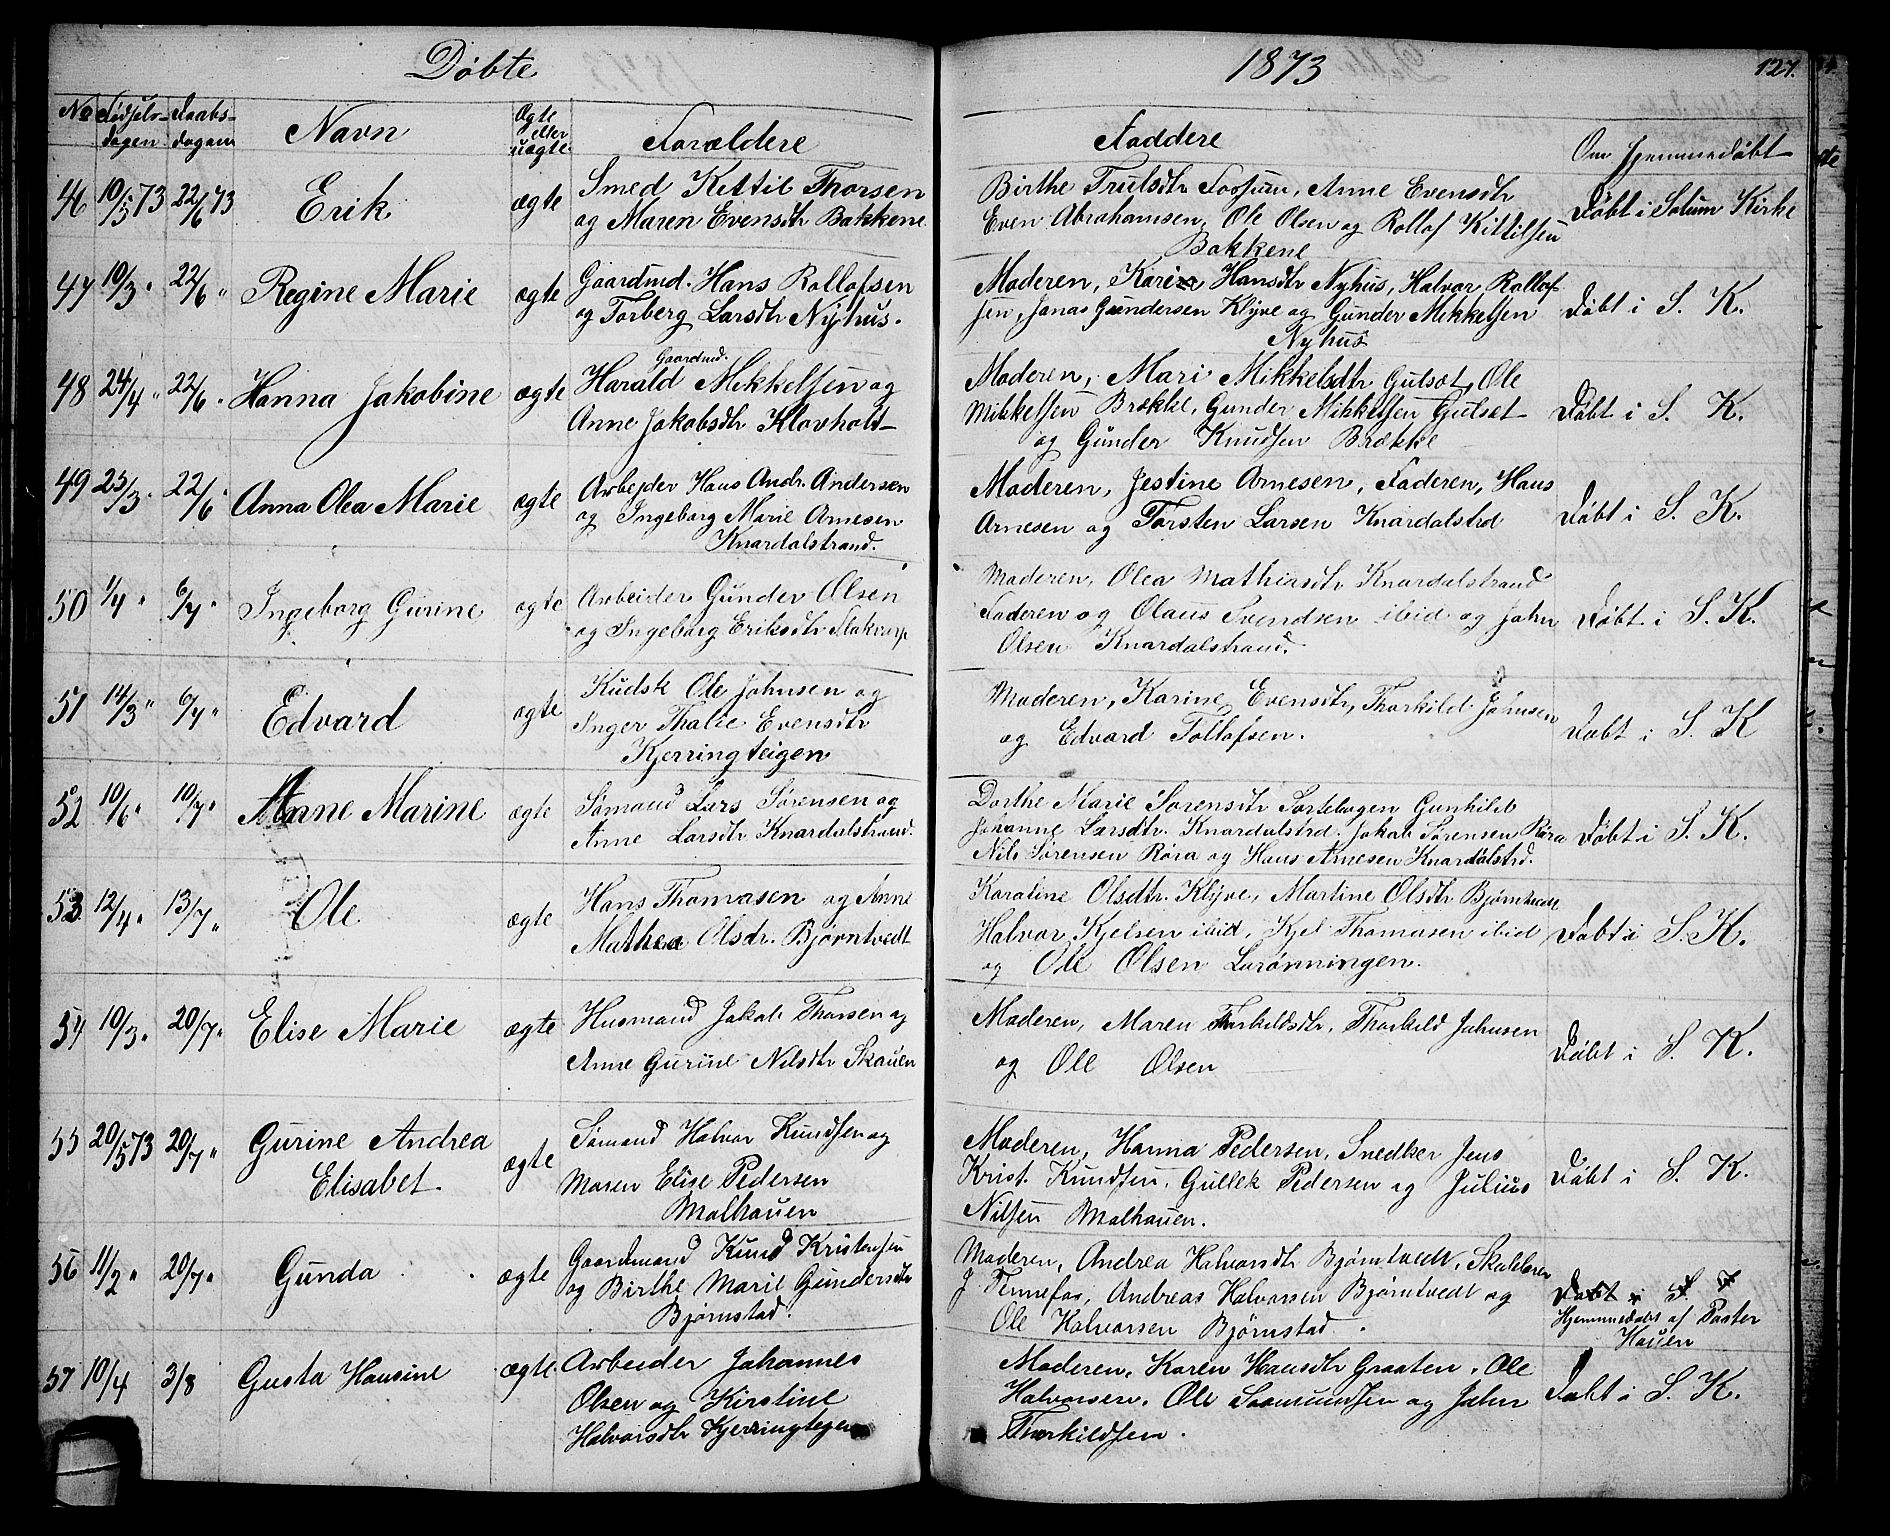 Døbte
1873
127.
No Fødsels- Daabs- Navn Ægte Forældere Faddere Om hjemmedøbt
dagen dagen eller
uægte
46 10/5 73 22/6 73 Erik ægte Smed Kittil Thorsen
og Maren Evensdtr Bakkene
Birthe Trulsdtr Fossum, Anne Evensdtr
Even Abrahamsen, Ole Olsen og Rollof Kittilsen
Bakkene
Døbt i Solum Kirke
47 10/3 " 22/6 " Regine Marie ægte Gaardmd. Hans Rollofsen
og Torberg Larsdtr Nyhus.
Moderen, Kari Hansdtr Nyhus, Halvor Rollof-
sen, Jonas Gundersen Klyve og Gunder Mikkelsen
Nyhus
Døbt i S. K.
48 24/4 " 22/6 " Hanna Jakobine ægte Gaardmd.
Harald Mikkelsen og
Anne Jakobsdtr Klovholt
Moderen, Mari Mikkelsdtr Gulset, Ole
Mikkelsen Brække, Gunder Mikkelsen Gulset
og Gunder Knudsen Brække
Døbt i S. K.
49 23/3 " 22/6 " Anna Olea Marie ægte Arbejder Hans Andr. Andersen
og Ingeborg Marie Arnesen
Knardalstrand.
Moderen, Jestine Arnesen, Faderen, Hans
Arnesen og Torsten Larsen Knardalstrd
Døbt i S. K.
50 1/4 " 6/7 " Ingeborg Gurine ægte Arbeider Gunder Olsen
og Ingeborg Eriksdtr Flakvarp
Moderen, Olea Mathiasdtr Knardalstrand
Faderen og Olaus Svendsen ibid og John
Olsen Knardalstrand.
Døbt i S. K.
51 14/3 " 6/7 " Edvard ægte Kudsk Ole Johnsen og
Inger Thalie Evensdtr
Kjerringteigen
Moderen, Karine Evensdtr, Thorkild Johnsen
og Edvard Tollofsen.
Døbt i S. K
52 10/6 " 10/7 " Anne Marine ægte Sømand Lars Sørensen og
Anne Larsdtr Knardalstrand.
Dorthe Marie Sørensdtr Gunhild
Johanne Larsdtr. Knardalstrd. Jakob Sørensen Røra
Nils Sørensen Røra og Hans Arnesen Knardalstrd.
Døbt i S. K.
53 12/4 " 13/7 " Ole ægte Hans Thomasen og Anne
Mathea Olsdr. Bjørntvedt
Karoline Olsdtr. Klyve, Martine Olsdtr Bjørntvedt
Halvor Kjelsen ibid, Kjel Thomasen ibid
og Ole Olsen Larønningen.
Døbt i S. K.
54 10/3 " 20/7 " Elise Marie ægte Husmand Jakob Thorsen og
Anne Gurine Nilsdtr Skauen
Moderen, Maren Thorkildsdtr, Thorkild Johnsen
og Ole Olsen
Døbt i S. K.
55 20/5 73 20/7 " Gurine Andrea
Elisabet ægte Sømand Halvor Knudsen og
Maren Elise Pedersen
Molhauen
Moderen, Hanna Pedersen, Snedker Jens
Krist. Knudsen, Gullek Pedersen og Julius
Nilsen Molhauen.
Døbt i S. K.
56 11/2 " 20/7 " Gunda ægte Gaardmand Knud Kristensen
og Birthe Marie Gundersdtr
Bjørnstad.
Moderen, Andrea Halvorsdtr Bjørntvedt, Skolelærer
J Tennefos, Andreas Halvorsen Bjørntvedt og
Ole Halvorsen Bjørnstad.
Døbt i S. K
Hjemmedøbt af Pastor
Hauen
57 10/4 3/8 Gusta Hansine ægte Arbeider Johannes
Olsen og Kirstine
Halvorsdtr Kjerringtegen
Moderen, Karen Hansdtr Graaten, Ole
Halvorsen, Ole Saamundsen og John
Thorkildsen.
Døbt i S. K.